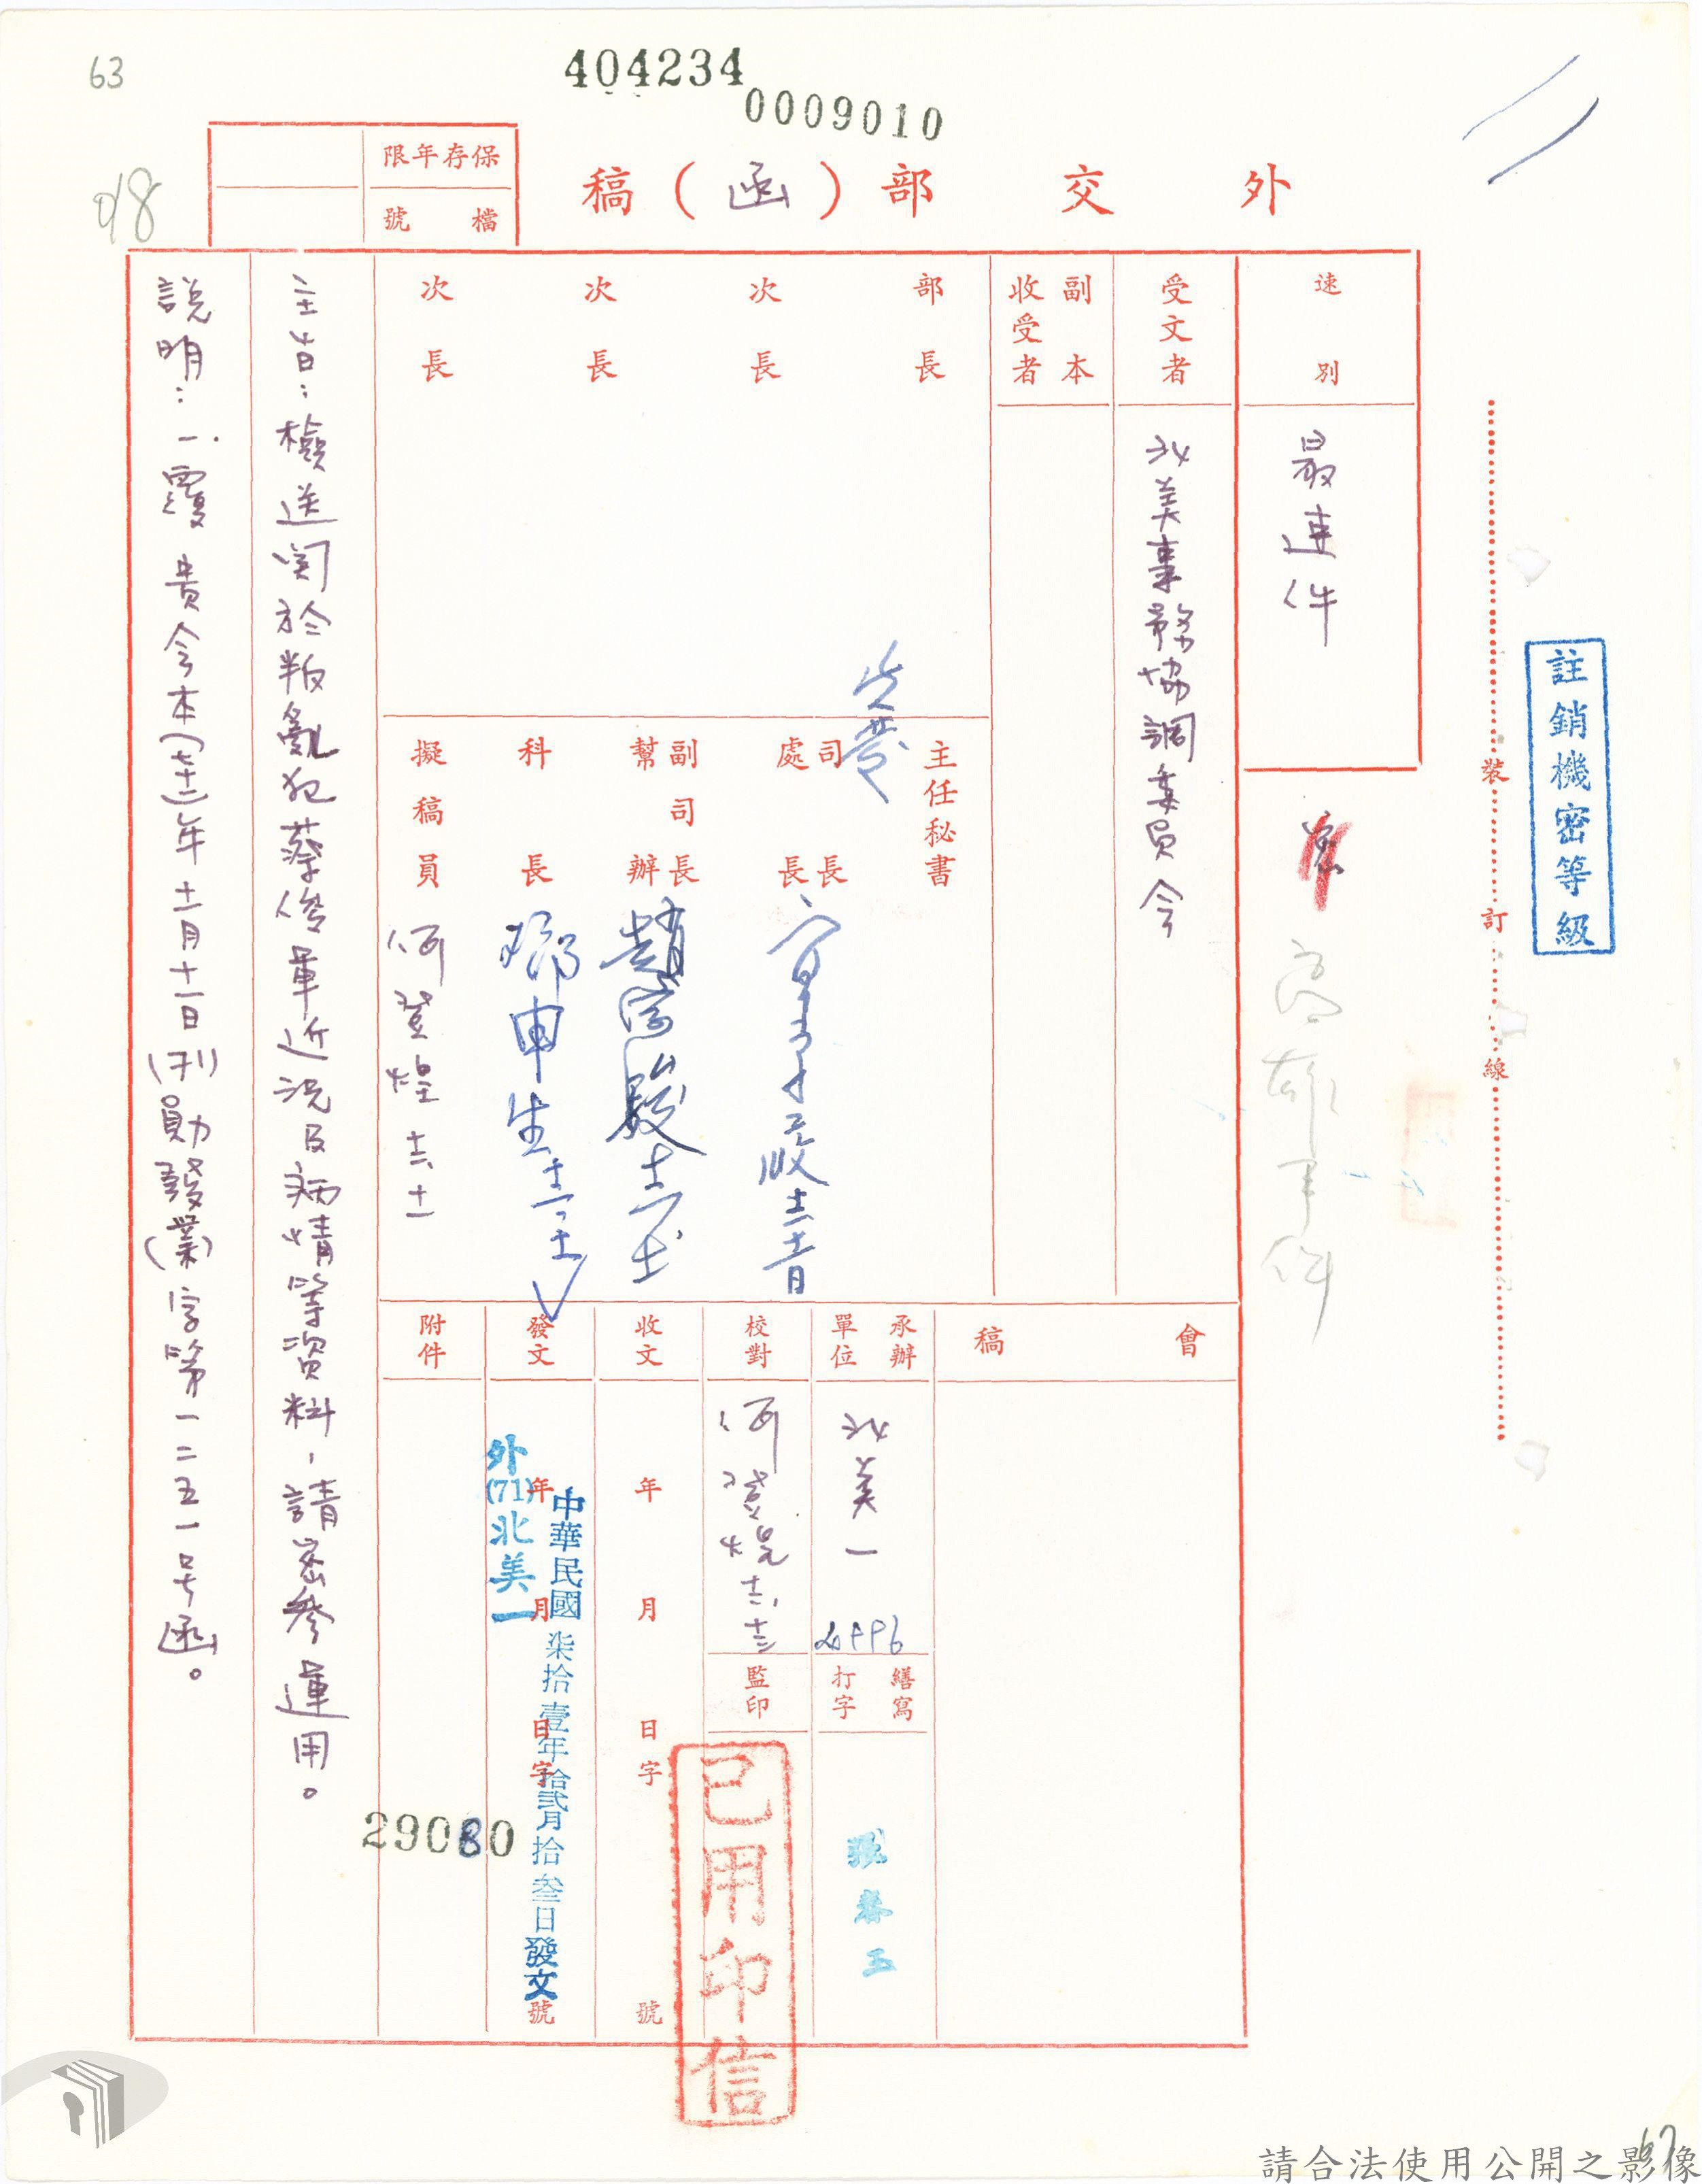 63
404234
0009010
外交部(函)稿
保存年限
檔號
速別
最速件
受文者
北美事務協調委員會
副本收受者
部長
次長
次長
次長
主任秘書
司長
處長
副司長
幫辦
趙
科長
鄧申生
擬稿員
何登煌
會稿
承辦單位
北美一
繕寫打字
張春三
校對
何登煌
監印
已用印信
收文
年月日字號
發文
年月日字號
外(71)北美一
中華民國柒拾壹年拾貳月拾叁日發文
29080
附件
主旨:檢送関於叛亂犯蔡俊軍近況及病情等資料,請密參運用。
說明:一、覆 貴會本(七十一)年十二月十一日(刊)勛發(業)字第一二五一号函。
註銷機密等級
裝訂線
高雄事件
請合法使用公開之影像